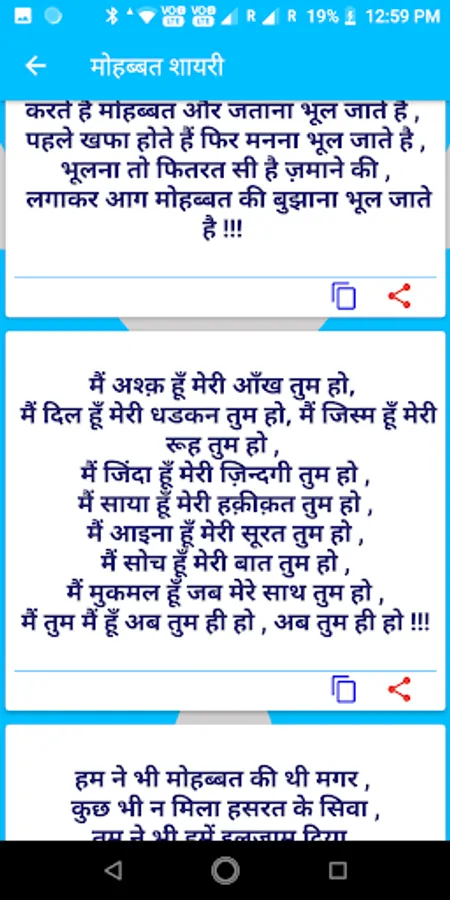 VO LTE VO LTE R R 19% 12:59 PM
मोहब्बत शायरी
करते है मोहब्बत और जताना भूल जाते है ,
पहले खफा होते हैं फिर मनना भूल जाते है ,
भूलना तो फितरत सी है ज़माने की ,
लगाकर आग मोहब्बत की बुझाना भूल जाते
है !!!
मैं अश्क़ हूँ मेरी आँख तुम हो,
मैं दिल हूँ मेरी धडकन तुम हो, मैं जिस्म हूँ मेरी
रूह तुम हो ,
मैं जिंदा हूँ मेरी ज़िन्दगी तुम हो ,
मैं साया हूँ मेरी हक़ीक़त तुम हो ,
मैं आइना हूँ मेरी सूरत तुम हो ,
मैं सोच हूँ मेरी बात तुम हो ,
मैं मुकमल हूँ जब मेरे साथ तुम हो ,
मैं तुम मैं हूँ अब तुम ही हो , अब तुम ही हो !!!
हम ने भी मोहब्बत की थी मगर ,
कुछ भी न मिला हसरत के सिवा ,
तुम ने भी हमें इलज़ाम दिया